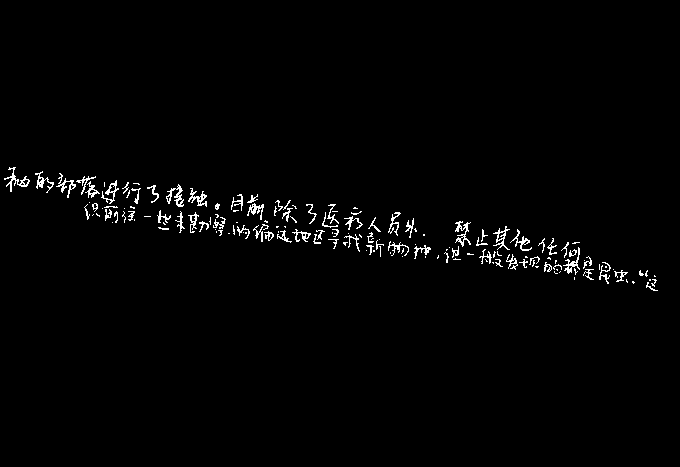 和的部落进行了接触。目前,除了医疗人员外,禁止其他任何
织前往一些未勘察的偏远地区寻找新物种,但一般发现的都是昆虫。“这